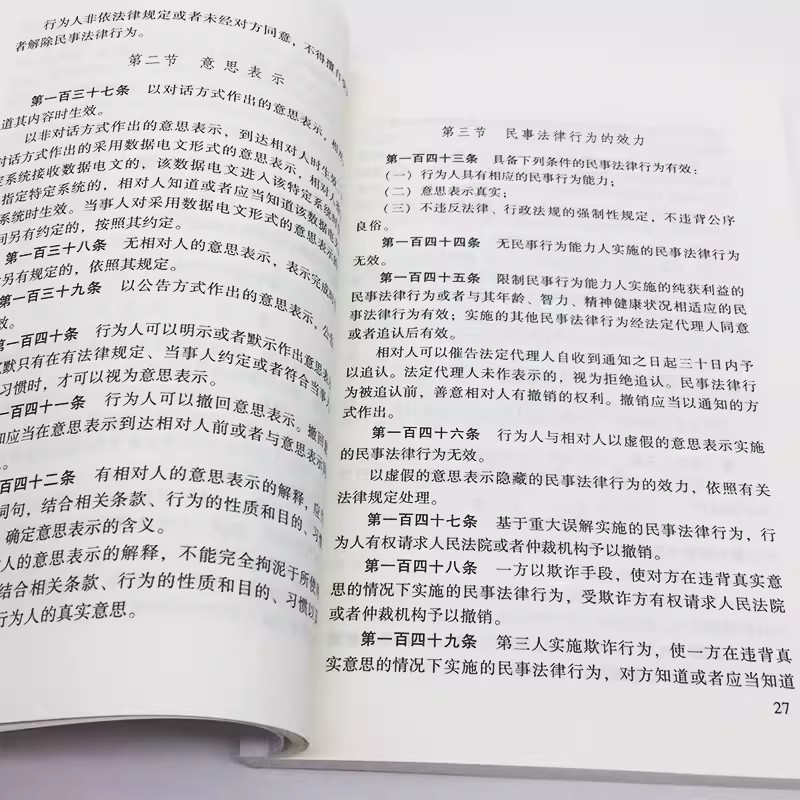 行为人非依法律规定或者未经对方同意，不得擅自
者解除民事法律行为。
第二节 意思表示
第一百三十七条 以对话方式作出的意思表示，相
道其内容时生效。
以非对话方式作出的意思表示，到达相对人时生效
对话方式作出的采用数据电文形式的意思表示，相对人
定系统接收数据电文的，该数据电文进入该特定系统时
指定特定系统的，相对人知道或者应当知道该数据电文
系统时生效。当事人对采用数据电文形式的意思表示的
间另有约定的，按照其约定。
第一百三十八条 无相对人的意思表示，表示完成时
另有规定的，依照其规定。
第一百三十九条 以公告方式作出的意思表示，公告
效。
第一百四十条 行为人可以明示或者默示作出意思表
默只有在有法律规定、当事人约定或者符合当事人
习惯时，才可以视为意思表示。
百四十一条 行为人可以撤回意思表示。撤回意
知应当在意思表示到达相对人前或者与意思表示同
百四十二条 有相对人的意思表示的解释，应
词句，结合相关条款、行为的性质和目的、习惯
确定意思表示的含义。
对人的意思表示的解释，不能完全拘泥于所使
结合相关条款、行为的性质和目的、习惯以及
行为人的真实意思。
第三节 民事法律行为的效力
第一百四十三条 具备下列条件的民事法律行为有效：
（一）行为人具有相应的民事行为能力；
（二）意思表示真实；
（三）不违反法律、行政法规的强制性规定，不违背公序
良俗。
第一百四十四条 无民事行为能力人实施的民事法律行为
无效。
第一百四十五条 限制民事行为能力人实施的纯获利益的
民事法律行为或者与其年龄、智力、精神健康状况相适应的民
事法律行为有效；实施的其他民事法律行为经法定代理人同意
或者追认后有效。
相对人可以催告法定代理人自收到通知之日起三十日内予
以追认。法定代理人未作表示的，视为拒绝追认。民事法律行
为被追认前，善意相对人有撤销的权利。撤销应当以通知的方
式作出。
第一百四十六条 行为人与相对人以虚假的意思表示实施
的民事法律行为无效。
以虚假的意思表示隐藏的民事法律行为的效力，依照有关
法律规定处理。
第一百四十七条 基于重大误解实施的民事法律行为，行
为人有权请求人民法院或者仲裁机构予以撤销。
第一百四十八条 一方以欺诈手段，使对方在违背真实意
思的情况下实施的民事法律行为，受欺诈方有权请求人民法院
或者仲裁机构予以撤销。
第一百四十九条 第三人实施欺诈行为，使一方在违背真
实意思的情况下实施的民事法律行为，对方知道或者应当知道
27